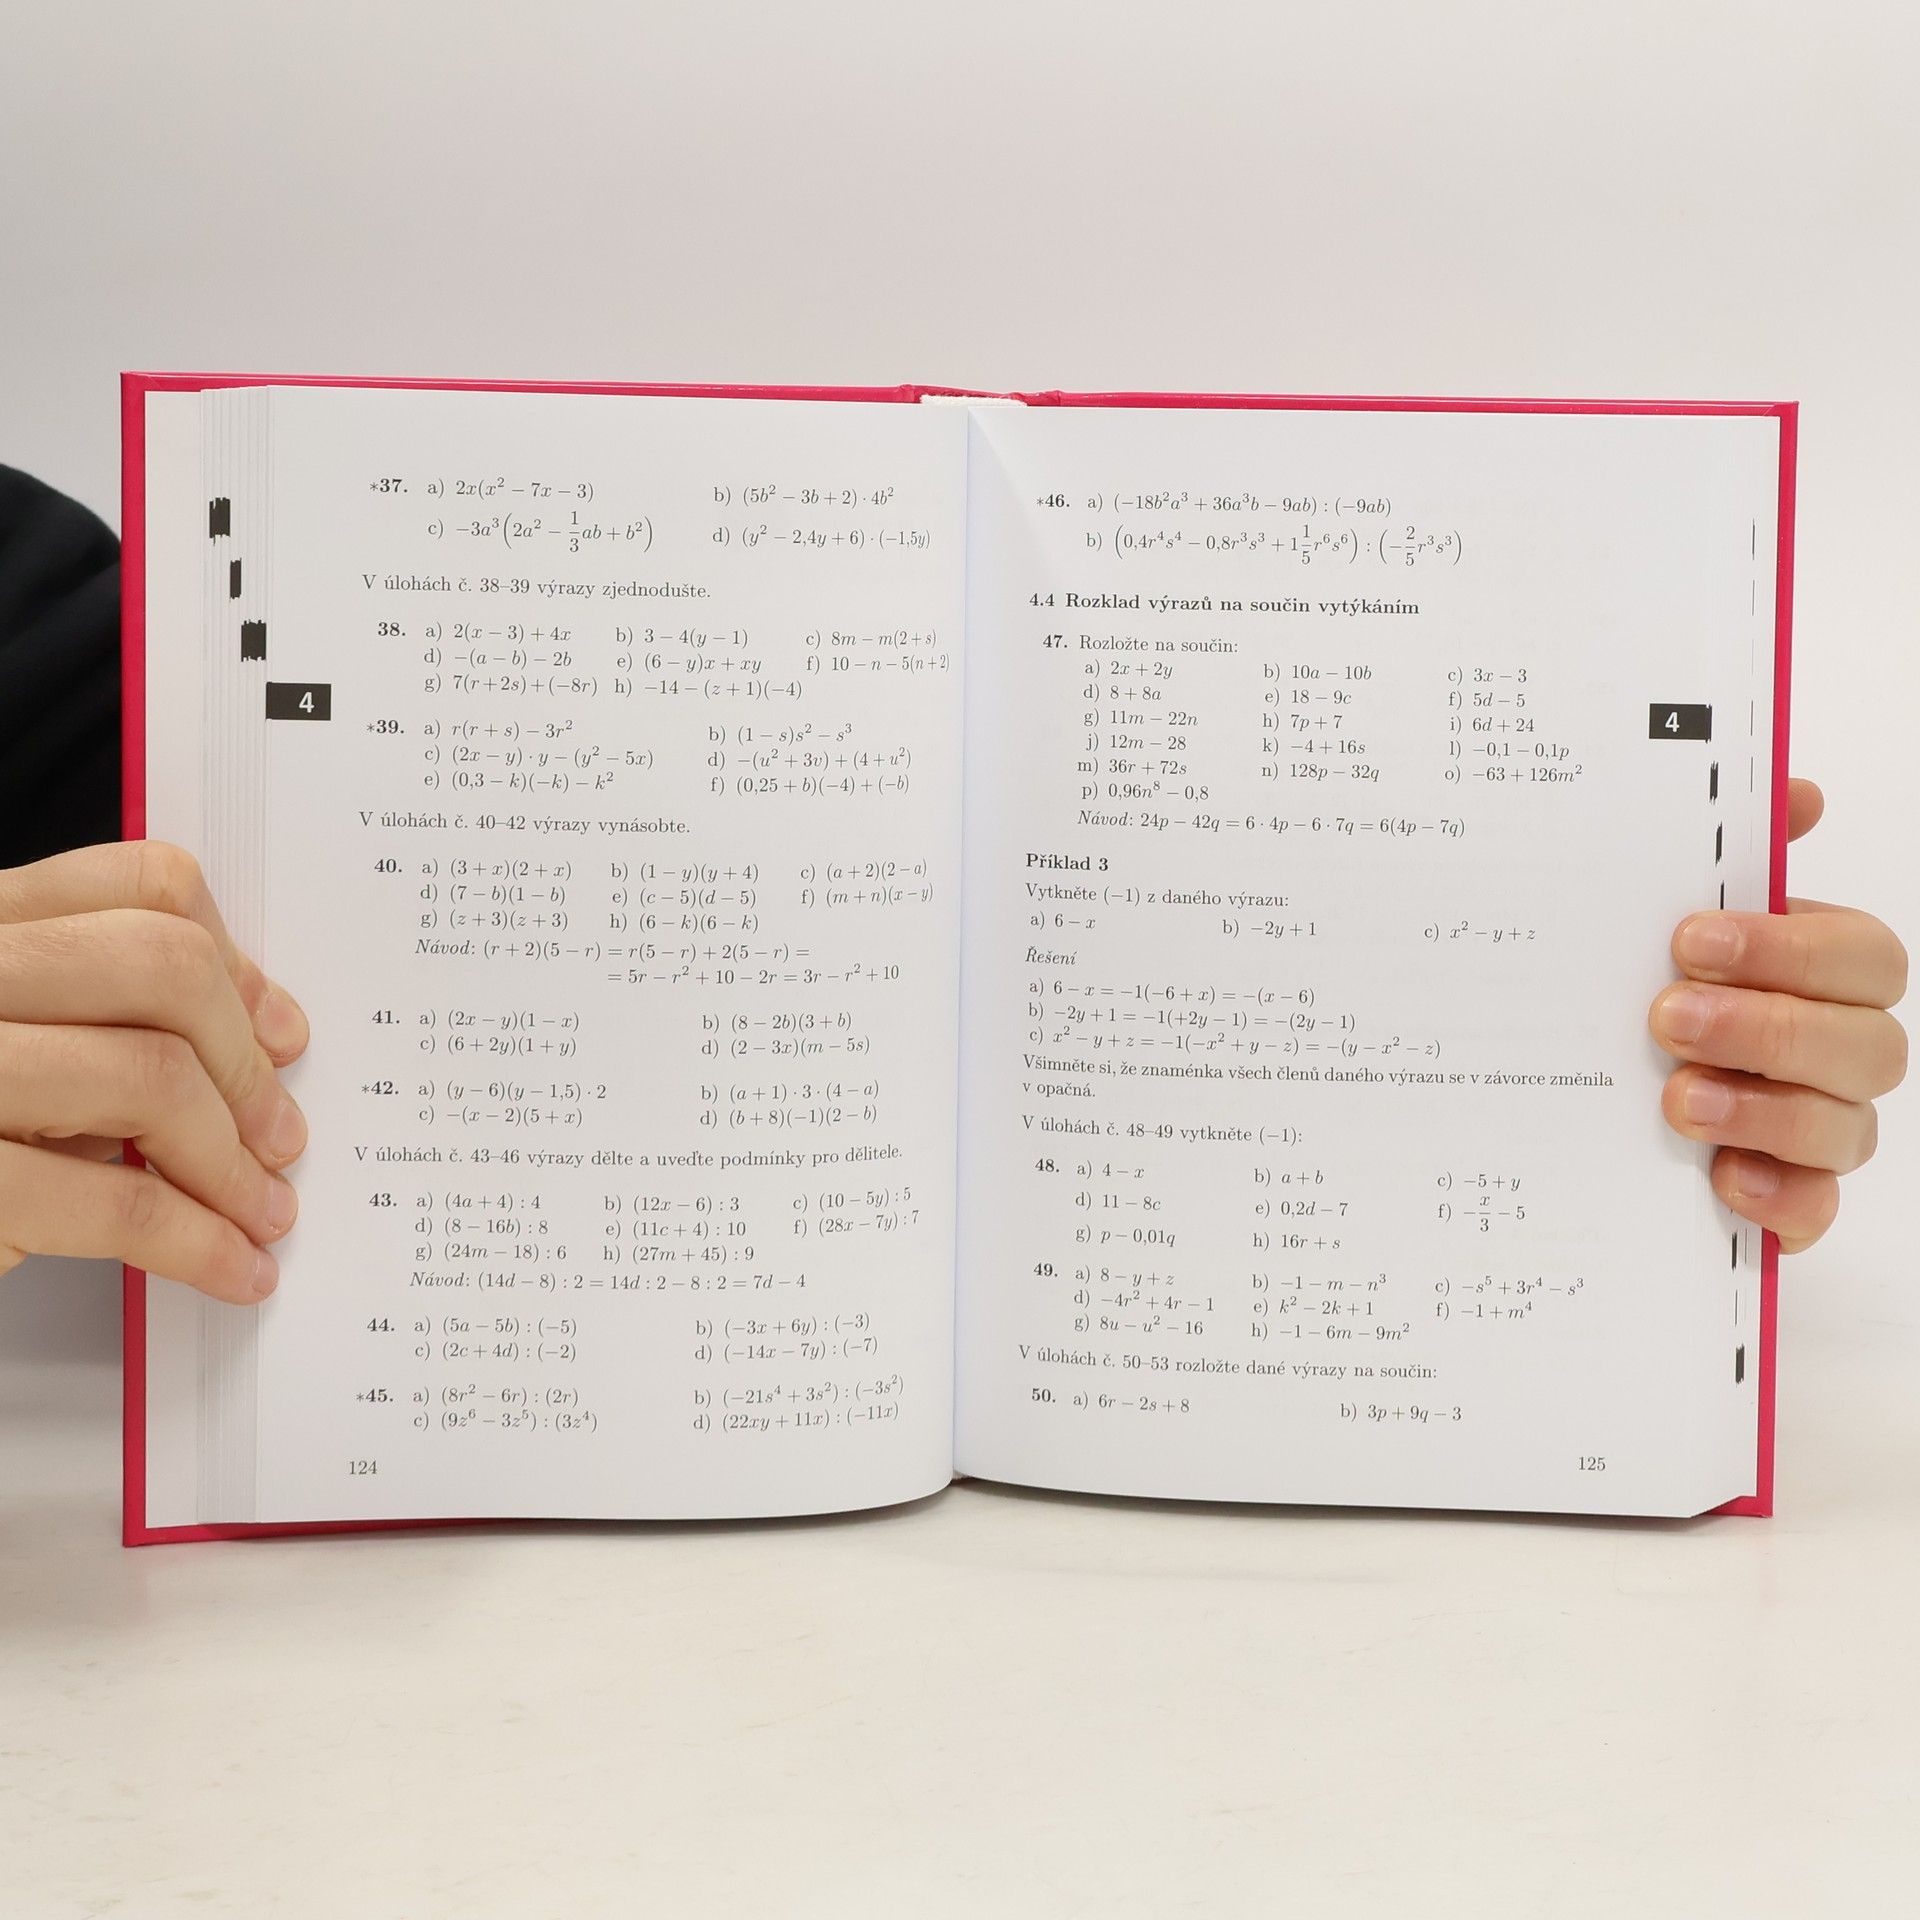 *37. a) 2x(x² − 7x − 3) b) (5b² − 3b + 2) · 4b²
c) −3a³(2a² − 1/3 ab + b²) d) (y² − 2,4y + 6) · (−1,5y)
V úlohách č. 38–39 výrazy zjednodušte.
38. a) 2(x − 3) + 4x b) 3 − 4(y − 1) c) 8m − m(2 + s)
d) −(a − b) − 2b e) (6 − y)x + xy f) 10 − n − 5(n + 2)
g) 7(r + 2s) + (−8r) h) −14 − (z + 1)(−4)
4
*39. a) r(r + s) − 3r² b) (1 − s)s² − s³
c) (2x − y) · y − (y² − 5x) d) −(u² + 3v) + (4 + u²)
e) (0,3 − k)(−k) − k² f) (0,25 + b)(−4) + (−b)
V úlohách č. 40–42 výrazy vynásobte.
40. a) (3 + x)(2 + x) b) (1 − y)(y + 4) c) (a + 2)(2 − a)
d) (7 − b)(1 − b) e) (c − 5)(d − 5) f) (m + n)(x − y)
g) (z + 3)(z + 3) h) (6 − k)(6 − k)
Návod: (r + 2)(5 − r) = r(5 − r) + 2(5 − r) =
= 5r − r² + 10 − 2r = 3r − r² + 10
41. a) (2x − y)(1 − x) b) (8 − 2b)(3 + b)
c) (6 + 2y)(1 + y) d) (2 − 3x)(m − 5s)
*42. a) (y − 6)(y − 1,5) · 2 b) (a + 1) · 3 · (4 − a)
c) −(x − 2)(5 + x) d) (b + 8)(−1)(2 − b)
V úlohách č. 43–46 výrazy dělte a uveďte podmínky pro dělitele.
43. a) (4a + 4) : 4 b) (12x − 6) : 3 c) (10 − 5y) : 5
d) (8 − 16b) : 8 e) (11c + 4) : 10 f) (28x − 7y) : 7
g) (24m − 18) : 6 h) (27m + 45) : 9
Návod: (14d − 8) : 2 = 14d : 2 − 8 : 2 = 7d − 4
44. a) (5a − 5b) : (−5) b) (−3x + 6y) : (−3)
c) (2c + 4d) : (−2) d) (−14x − 7y) : (−7)
*45. a) (8r² − 6r) : (2r) b) (−21s⁴ + 3s²) : (−3s²)
c) (9z⁶ − 3z⁵) : (3z⁴) d) (22xy + 11x) : (−11x)
124
*46. a) (−18b²a³ + 36a³b − 9ab) : (−9ab)
b) (0,4r⁴s⁴ − 0,8r³s³ + 1 1/5 r⁶s⁶) : (−2/5 r³s³)
4.4 Rozklad výrazů na součin vytýkáním
47. Rozložte na součin:
a) 2x + 2y b) 10a − 10b c) 3x − 3
d) 8 + 8a e) 18 − 9c f) 5d − 5
g) 11m − 22n h) 7p + 7 i) 6d + 24
j) 12m − 28 k) −4 + 16s l) −0,1 − 0,1p
m) 36r + 72s n) 128p − 32q o) −63 + 126m²
p) 0,96n⁸ − 0,8
Návod: 24p − 42q = 6 · 4p − 6 · 7q = 6(4p − 7q)
4
Příklad 3
Vytkněte (−1) z daného výrazu:
a) 6 − x b) −2y + 1 c) x² − y + z
Řešení
a) 6 − x = −1(−6 + x) = −(x − 6)
b) −2y + 1 = −1(+2y − 1) = −(2y − 1)
c) x² − y + z = −1(−x² + y − z) = −(y − x² − z)
Všimněte si, že znaménka všech členů daného výrazu se v závorce změnila
v opačná.
V úlohách č. 48–49 vytkněte (−1):
48. a) 4 − x b) a + b c) −5 + y
d) 11 − 8c e) 0,2d − 7 f) −x/3 − 5
g) p − 0,01q h) 16r + s
49. a) 8 − y + z b) −1 − m − n³ c) −s⁵ + 3r⁴ − s³
d) −4r² + 4r − 1 e) k² − 2k + 1 f) −1 + m⁴
g) 8u − u² − 16 h) −1 − 6m − 9m²
V úlohách č. 50–53 rozložte dané výrazy na součin:
50. a) 6r − 2s + 8 b) 3p + 9q − 3
125